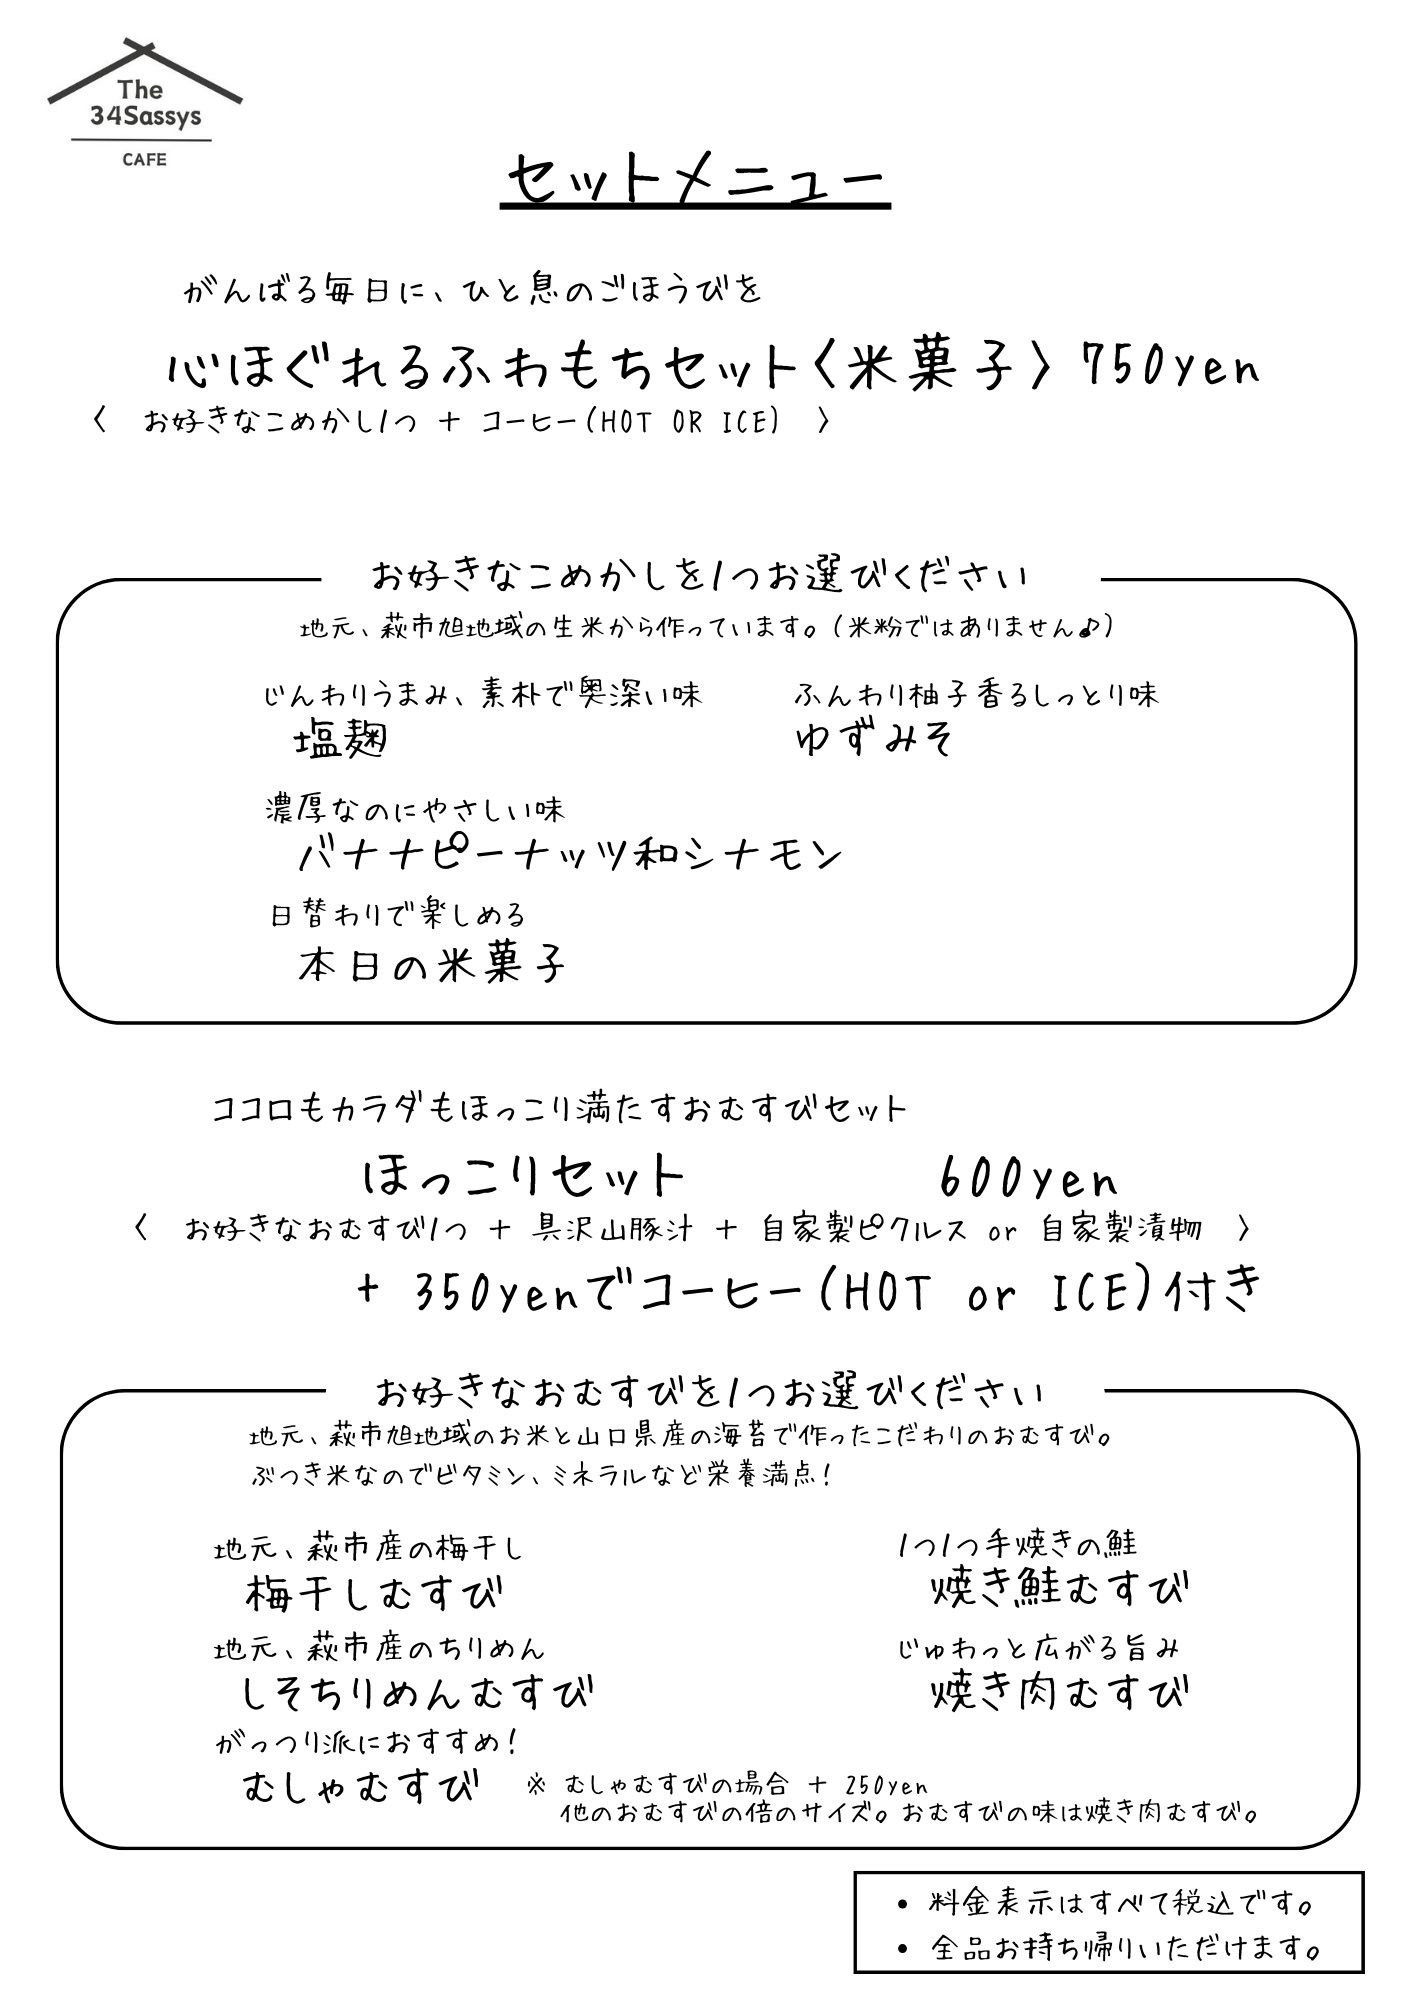 The
34Sassys
CAFE
セットメニュー
がんばる毎日に、ひと息のごほうびを
心ほぐれるふわもちセット〈米菓子〉750yen
〈 お好きなこめかし1つ + コーヒー(HOT OR ICE) 〉
お好きなこめかしを1つお選びください
地元、萩市旭地域の生米から作っています。(米粉ではありません♪)
じんわりうまみ、素朴で奥深い味
塩麹
ふんわり柚子香るしっとり味
ゆずみそ
濃厚なのにやさしい味
バナナピーナッツ和シナモン
日替わりで楽しめる
本日の米菓子
ココロもカラダもほっこり満たすおむすびセット
ほっこりセット 600yen
〈 お好きなおむすび1つ + 具沢山豚汁 + 自家製ピクルス or 自家製漬物 〉
+ 350yenでコーヒー(HOT or ICE)付き
お好きなおむすびを1つお選びください
地元、萩市旭地域のお米と山口県産の海苔で作ったこだわりのおむすび。
ぶつき米なのでビタミン、ミネラルなど栄養満点!
地元、萩市産の梅干し
梅干しむすび
1つ1つ手焼きの鮭
焼き鮭むすび
地元、萩市産のちりめん
しそちりめんむすび
じゅわっと広がる旨み
焼き肉むすび
がっつり派におすすめ!
むしゃむすび
※ むしゃむすびの場合 + 250yen
他のおむすびの倍のサイズ。おむすびの味は焼き肉むすび。
• 料金表示はすべて税込です。
• 全品お持ち帰りいただけます。